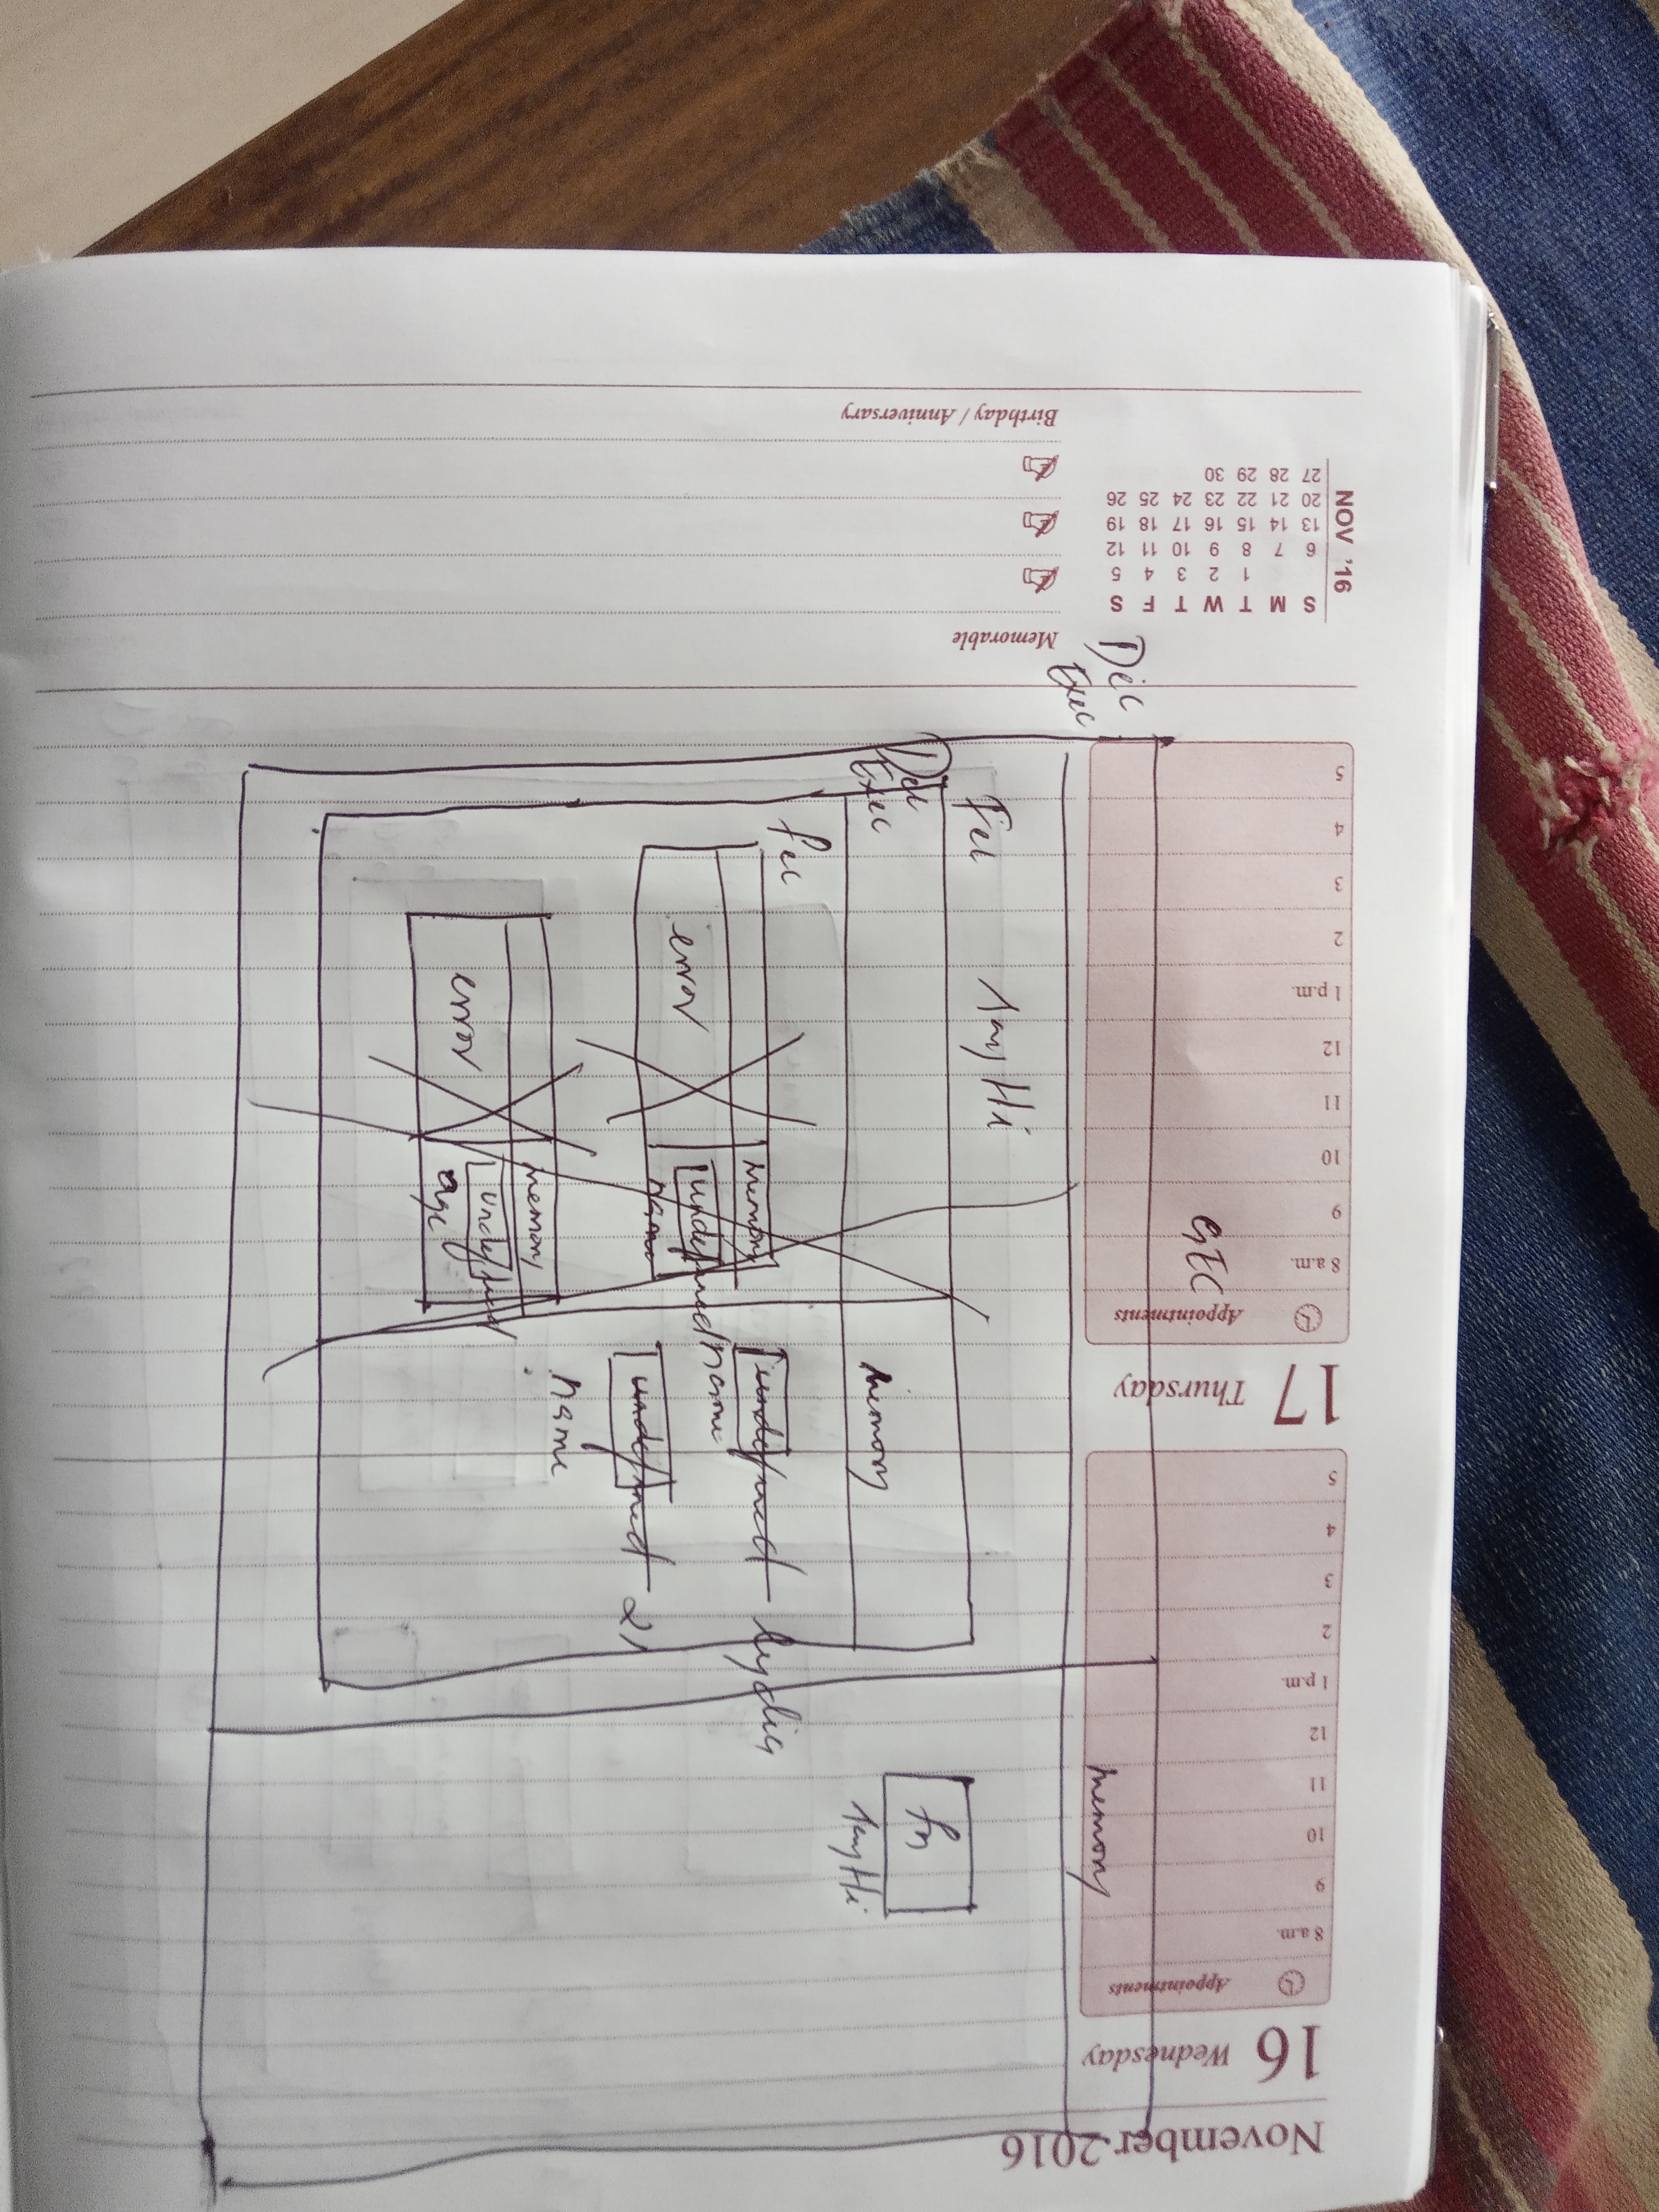 November 2016
16 Wednesday
Appointments
8 a.m.
9
10
11
12
1 p.m.
2
3
4
5
17 Thursday
Appointments
8 a.m.
9
10
11
12
1 p.m.
2
3
4
5
Memorable
Birthday / Anniversary
NOV '16
S M T W T F S
1 2 3 4 5
6 7 8 9 10 11 12
13 14 15 16 17 18 19
20 21 22 23 24 25 26
27 28 29 30
Dec
Exec
GEC
memory
Fec
Say Hi
fn
SayHi
Dec
Exec
memory
undefined lydia
name
undefined 21
name
fec
error
memory
undefined
name
error
memory
undefined
age